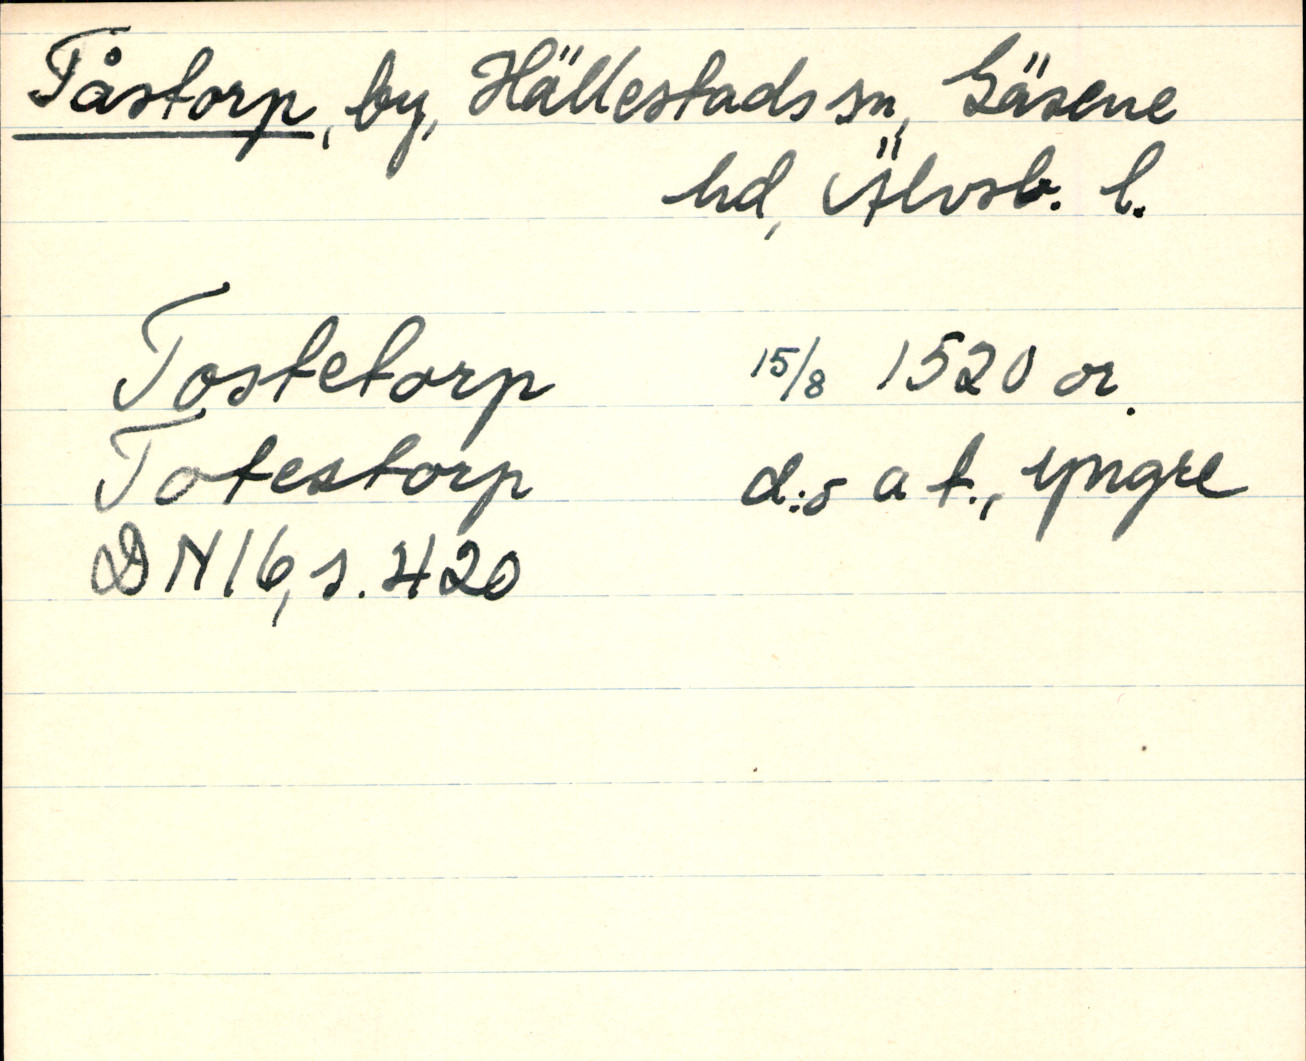 Tåstorp, by, Hällestads sn, Gäsene
hd, Älvsb. l.
Tostetorp 15/8 1520 or.
Totestorp d:o a t., yngre
DN16, s. 420